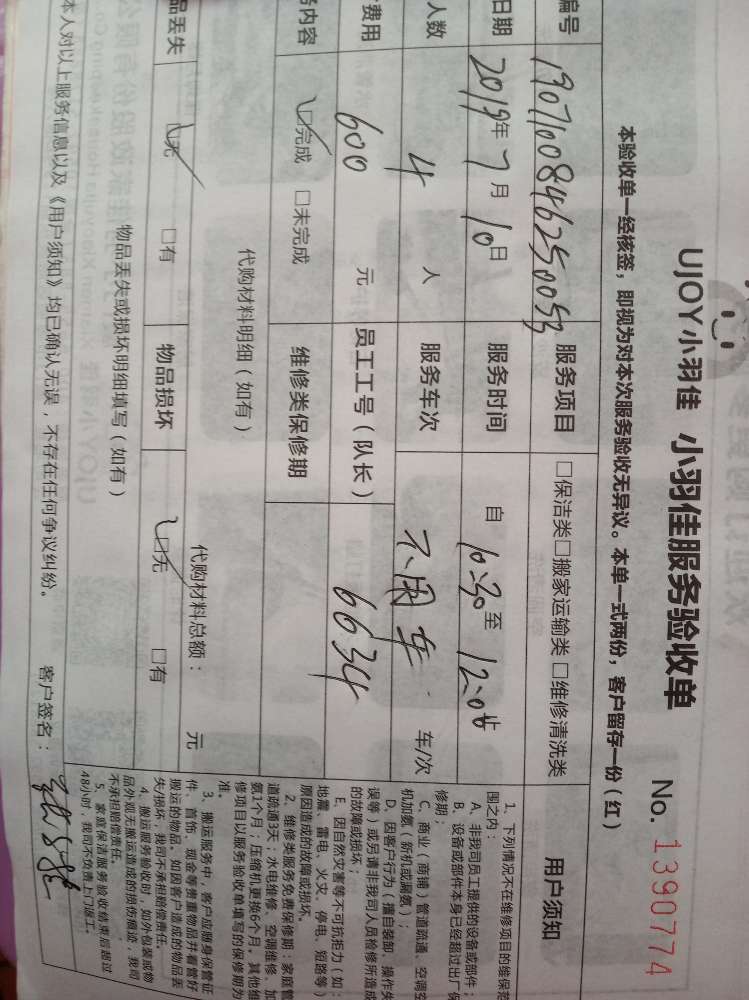 UJOY小羽佳 小羽佳服务验收单
No. 1390774
本验收单一经核签，即视为对本次服务验收无异议。本单一式两份，客户留存一份（红）
编号 190710084625005 服务项目 □保洁类□搬家运输类□维修清洗类
日期 2019年7月10日 服务时间 自10:30至12:0
人数 4人 服务车次 不用车 车/次
费用 600元 员工工号（队长） 6634
务内容 □完成 □未完成 维修类保修期
代购材料明细（如有）
代购材料总额： 元
品丢失 □无 □有 物品损坏 □无 □有
物品丢失或损坏明细填写（如有）
本人对以上服务信息以及《用户须知》均已确认无误，不存在任何争议纠纷。 客户签名：
用户须知
1、下列情况不在维修项目的维保范
围之内：
A、非我司员工提供的设备或部件；
B、设备或部件本身已经超过出厂保
修期；
C、商业（商铺）管道疏通、空调空
机加氨（新机或漏氨）；
D、因客户行为（擅自装卸、操作失
误等）或另请非我司人员检修所造成
的故障或损坏；
E、因自然灾害等不可抗拒力（如：
地震、雷电、火灾、停电、短路等）
原因造成的故障或损坏。
2、维修类服务免费保修期：家庭管
道疏通3天；水电维修、空调维修、加
氨1个月；压缩机更换6个月，其他维
修项目以服务验收单填写的保修期为
准。
3、搬运服务中，客户应随身保管证
件、首饰、现金等贵重物品并看管好
搬运的物品。如因客户造成的物品丢
失/损坏，我司不承担赔偿责任。
4、搬运服务验收时，如外包装或物
品外观无搬运造成的损伤痕迹，我司
不承担赔偿责任。
5、家庭保洁服务验收结束后超过
48小时，我司不负责上门返工。